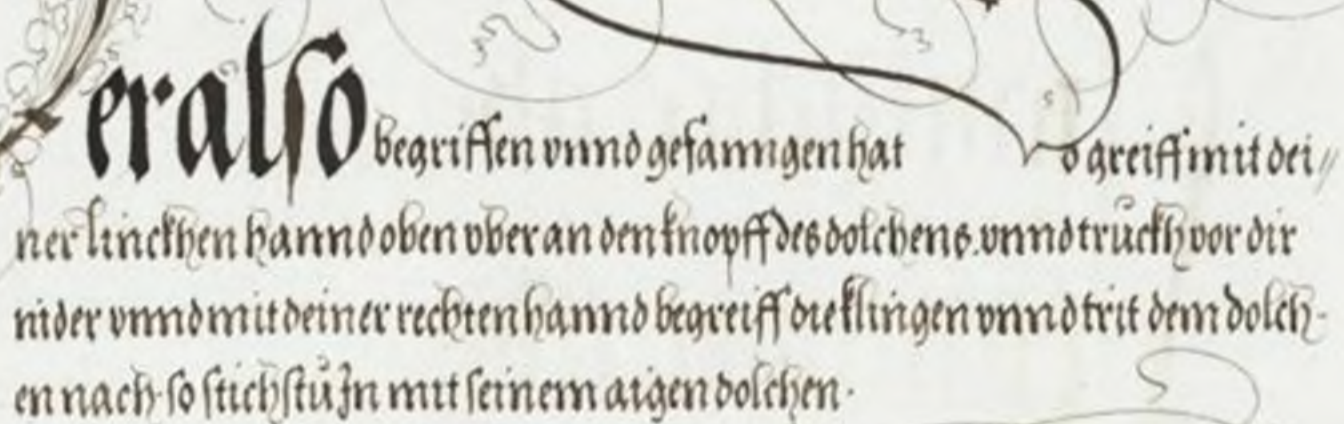 er also begriffen vnnd gefanngen hat o greiff mit dei//
ner linckhen hannd oben vber an den knopff des dolchens. vnnd trückh vor dir
nider vnnd mit deiner rechten hannd begreiff die klingen vnnd trit dem dolch-
en nach· so stichstü Jn mit seinem aigen dolchen·